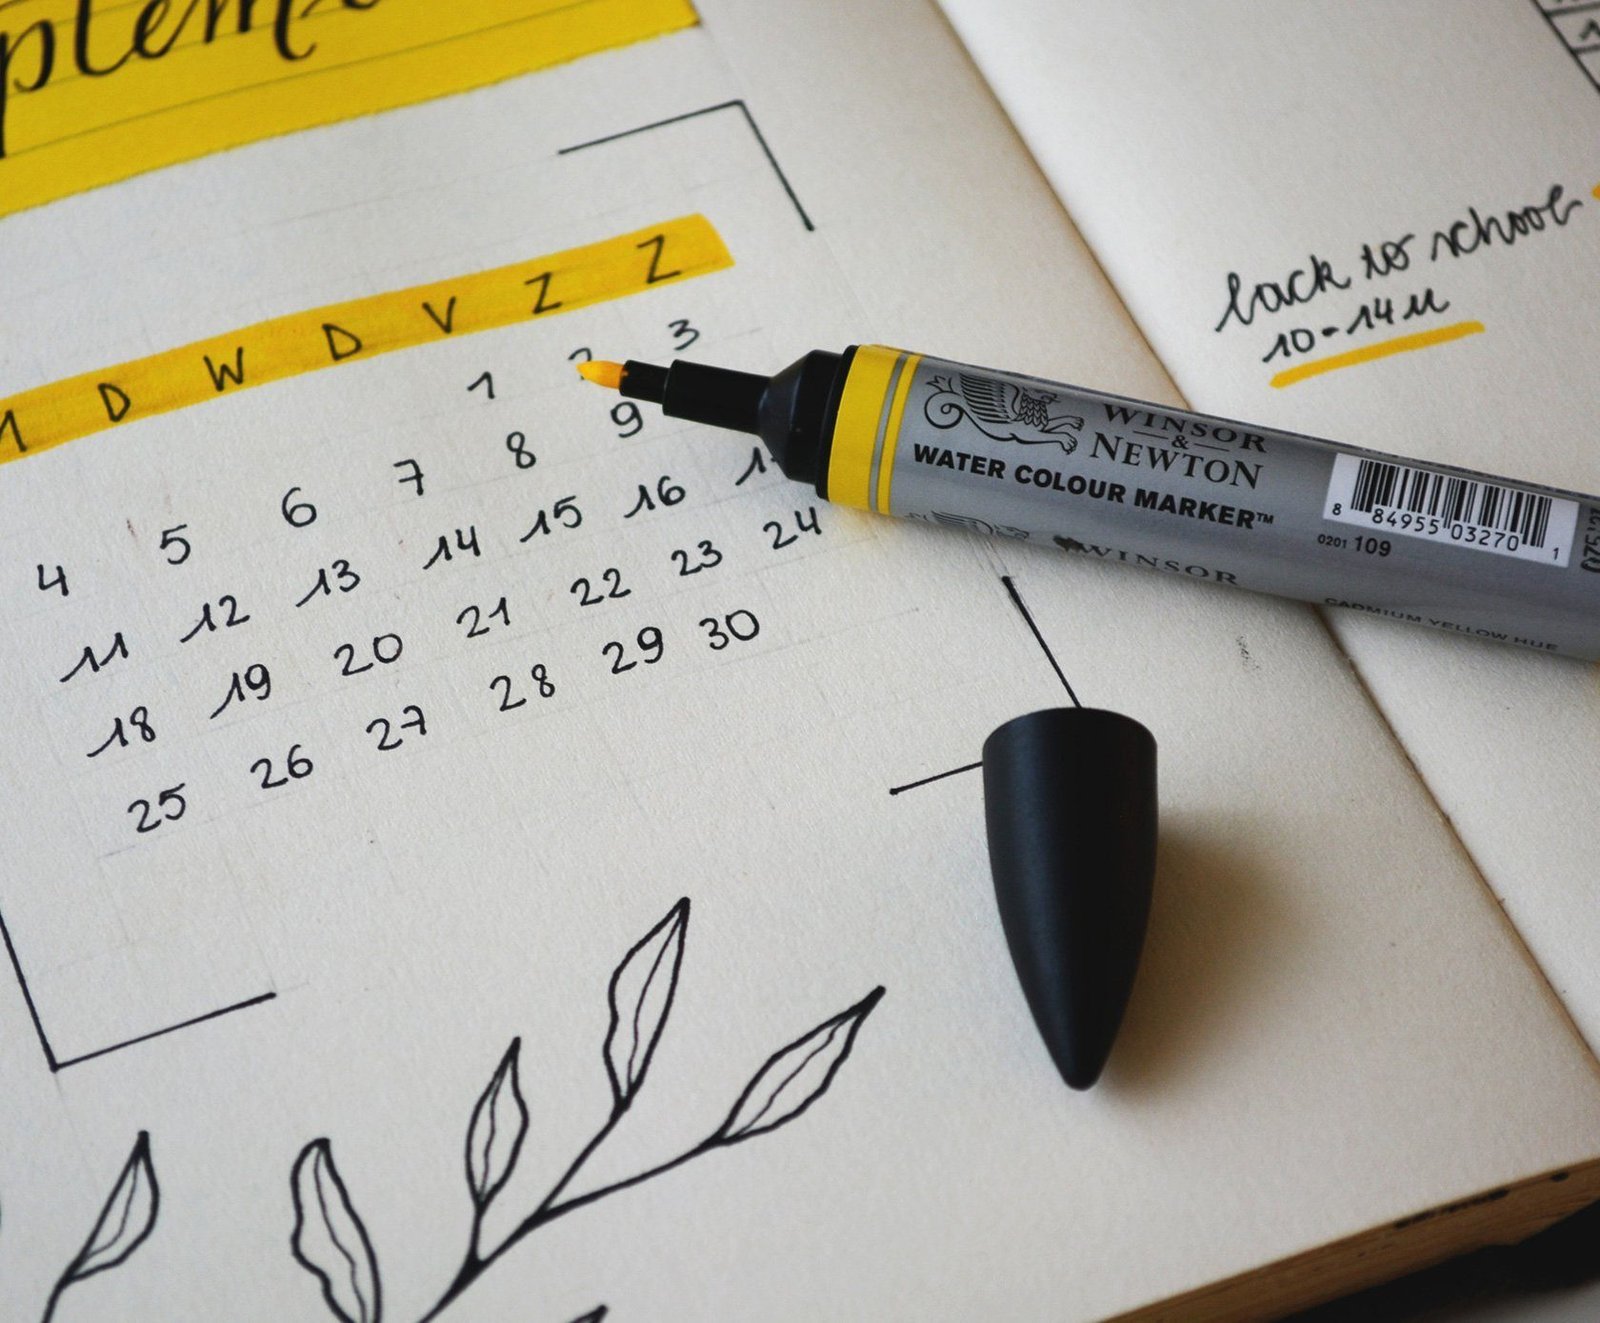 ptem
M D W D V Z Z
1 2 3
4 5 6 7 8 9
11 12 13 14 15 16 1
18 19 20 21 22 23 24
25 26 27 28 29 30
back to school
10-14u
WINSOR
&
NEWTON
WATER COLOUR MARKER™
8 84955 03270 1
0201 109
WINSOR
CADMIUM YELLOW HUE